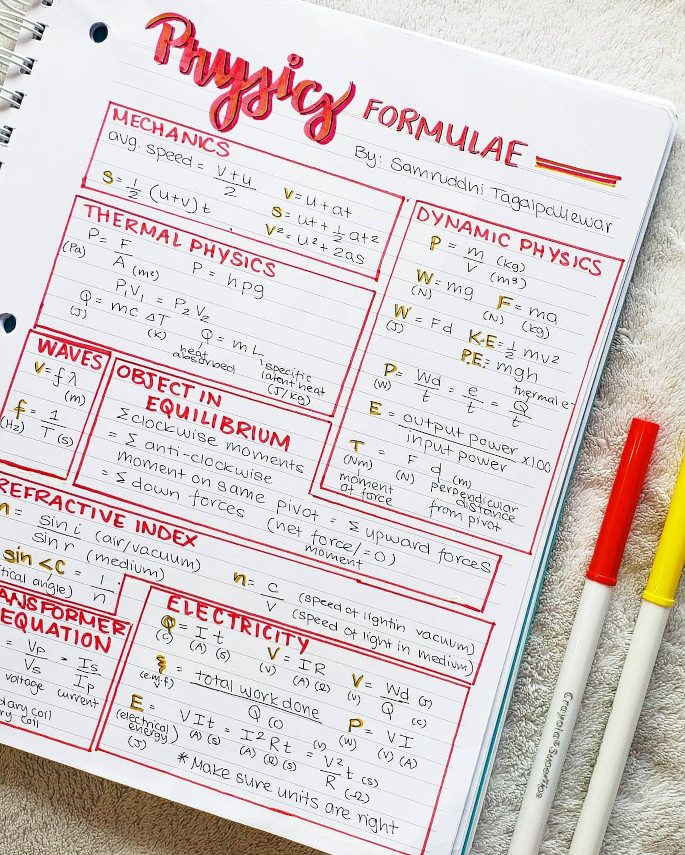 Physics FORMULAE
By: Samruddhi Tagalpallewar
MECHANICS
avg. speed = v+u / 2
s = 1/2 (u+v) t
v = u + at
s = ut + 1/2 at2
v² = u² + 2as
THERMAL PHYSICS
P = F / A (m²)
(Pa)
P = hpg
P₁V₁ = P₂V₂
Q = mc ΔT
(J) (K)
Q = mL
heat absorbed
specific latent heat (J/kg)
DYNAMIC PHYSICS
P = m (kg) / V (m³)
W = mg
(N)
F = ma
(N) (kg)
W = Fd
(J)
K.E = 1/2 mv2
P.E = mgh
P = Wd / t = e / t = Q / t
(W)
thermal e
E = output power / input power x100
T = F d (m)
(Nm) (N)
moment of force
perpendicular distance from pivot
WAVES
v = f λ
(m)
f = 1 / T (s)
(Hz)
OBJECT IN
EQUILIBRIUM
Σ clockwise moments
= Σ anti-clockwise
moment on same pivot = Σ upward forces
= Σ down forces (net force/=0)
moment
REFRACTIVE INDEX
n = sin i (air/vacuum) / sin r (medium)
sin <c = 1 / n
n = c (speed of light in vacuum) / v (speed of light in medium)
EQUATION
= Vp / Vs = Is / Ip
voltage current
coil
coil
ELECTRICITY
Q = I t
(C) (A) (s)
V = I R
(V) (A) (Ω)
V = Wd (J) / Q (C)
(V)
ξ = total work done / Q (C)
(e.m.f)
P = V I
(W) (V) (A)
E = VIt = I² Rt = V² / R t (s)
(electrical energy) (J)
(A) (s) (A) (Ω) (s) (V) (Ω)
*Make sure units are right
Crayola Supertips